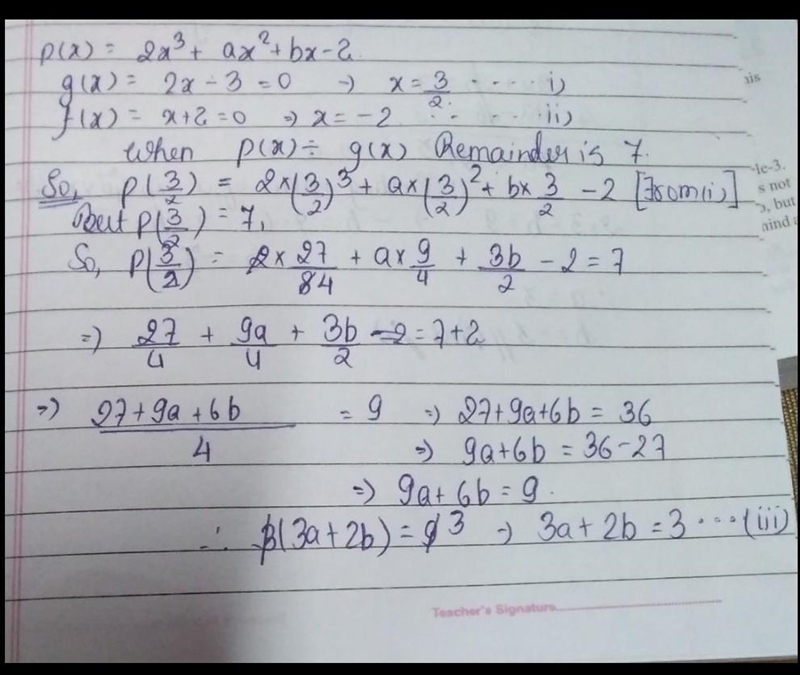 p(x) = 2x³ + ax² + bx - 2
g(x) = 2x - 3 = 0 → x = 3/2 ..... i)
f(x) = x+2 = 0 ⇒ x = -2 ........ ii)
When p(x) ÷ g(x) Remainder is 7.
So, p(3/2) = 2×(3/2)³ + a×(3/2)² + b×3/2 - 2 [From(i)]
But p(3/2) = 7,
So, p(3/2) = 2 × 27/84 + a × 9/4 + 3b/2 - 2 = 7
⇒) 27/4 + 9a/4 + 3b/2 -2 = 7+2
⇒) 27+9a+6b/4 = 9 ⇒) 27+9a+6b = 36
⇒) 9a+6b = 36-27
⇒) 9a+6b = 9.
∴ 3(3a+2b) = 9 3 → 3a+2b = 3 ....(iii)
Teacher's Signature
nis
-le-3.
s not
, but